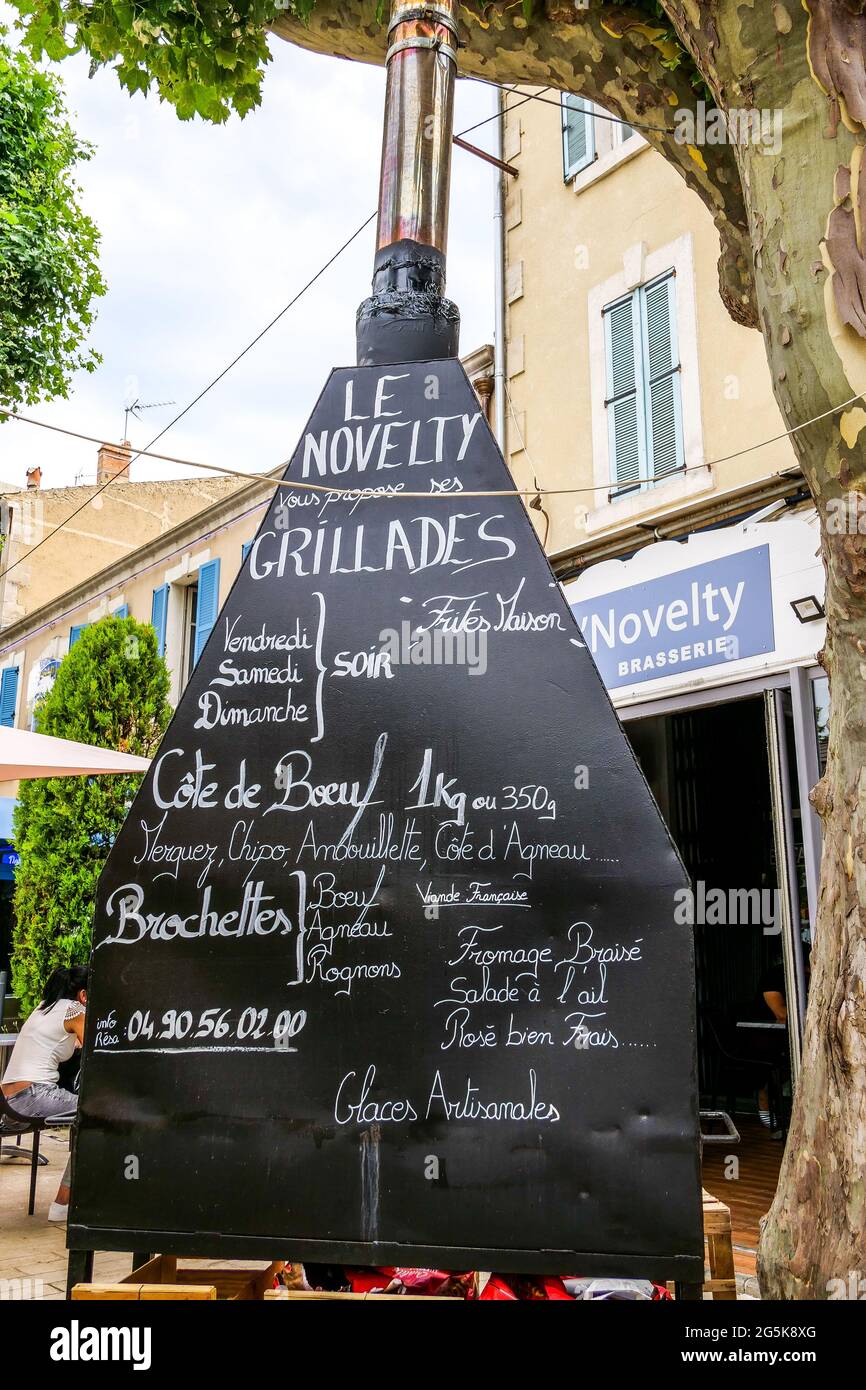 LE
NOVELTY
vous propose ses
GRILLADES
"Frites Maison"
Vendredi
Samedi
Dimanche
SOIR
Côte de Boeuf 1Kg ou 350g
Merguez, Chipo, Andouillette, Côte d'Agneau.....
Brochettes
Boeuf
Agneau
Rognons
Viande Française
Fromage Braisé
Salade à l'ail
Rosé bien Frais......
info
Résa : 04.90.56.02.00
Glaces Artisanales
'Novelty
BRASSERIE
alamy
Image ID: 2G5K8XG
www.alamy.com